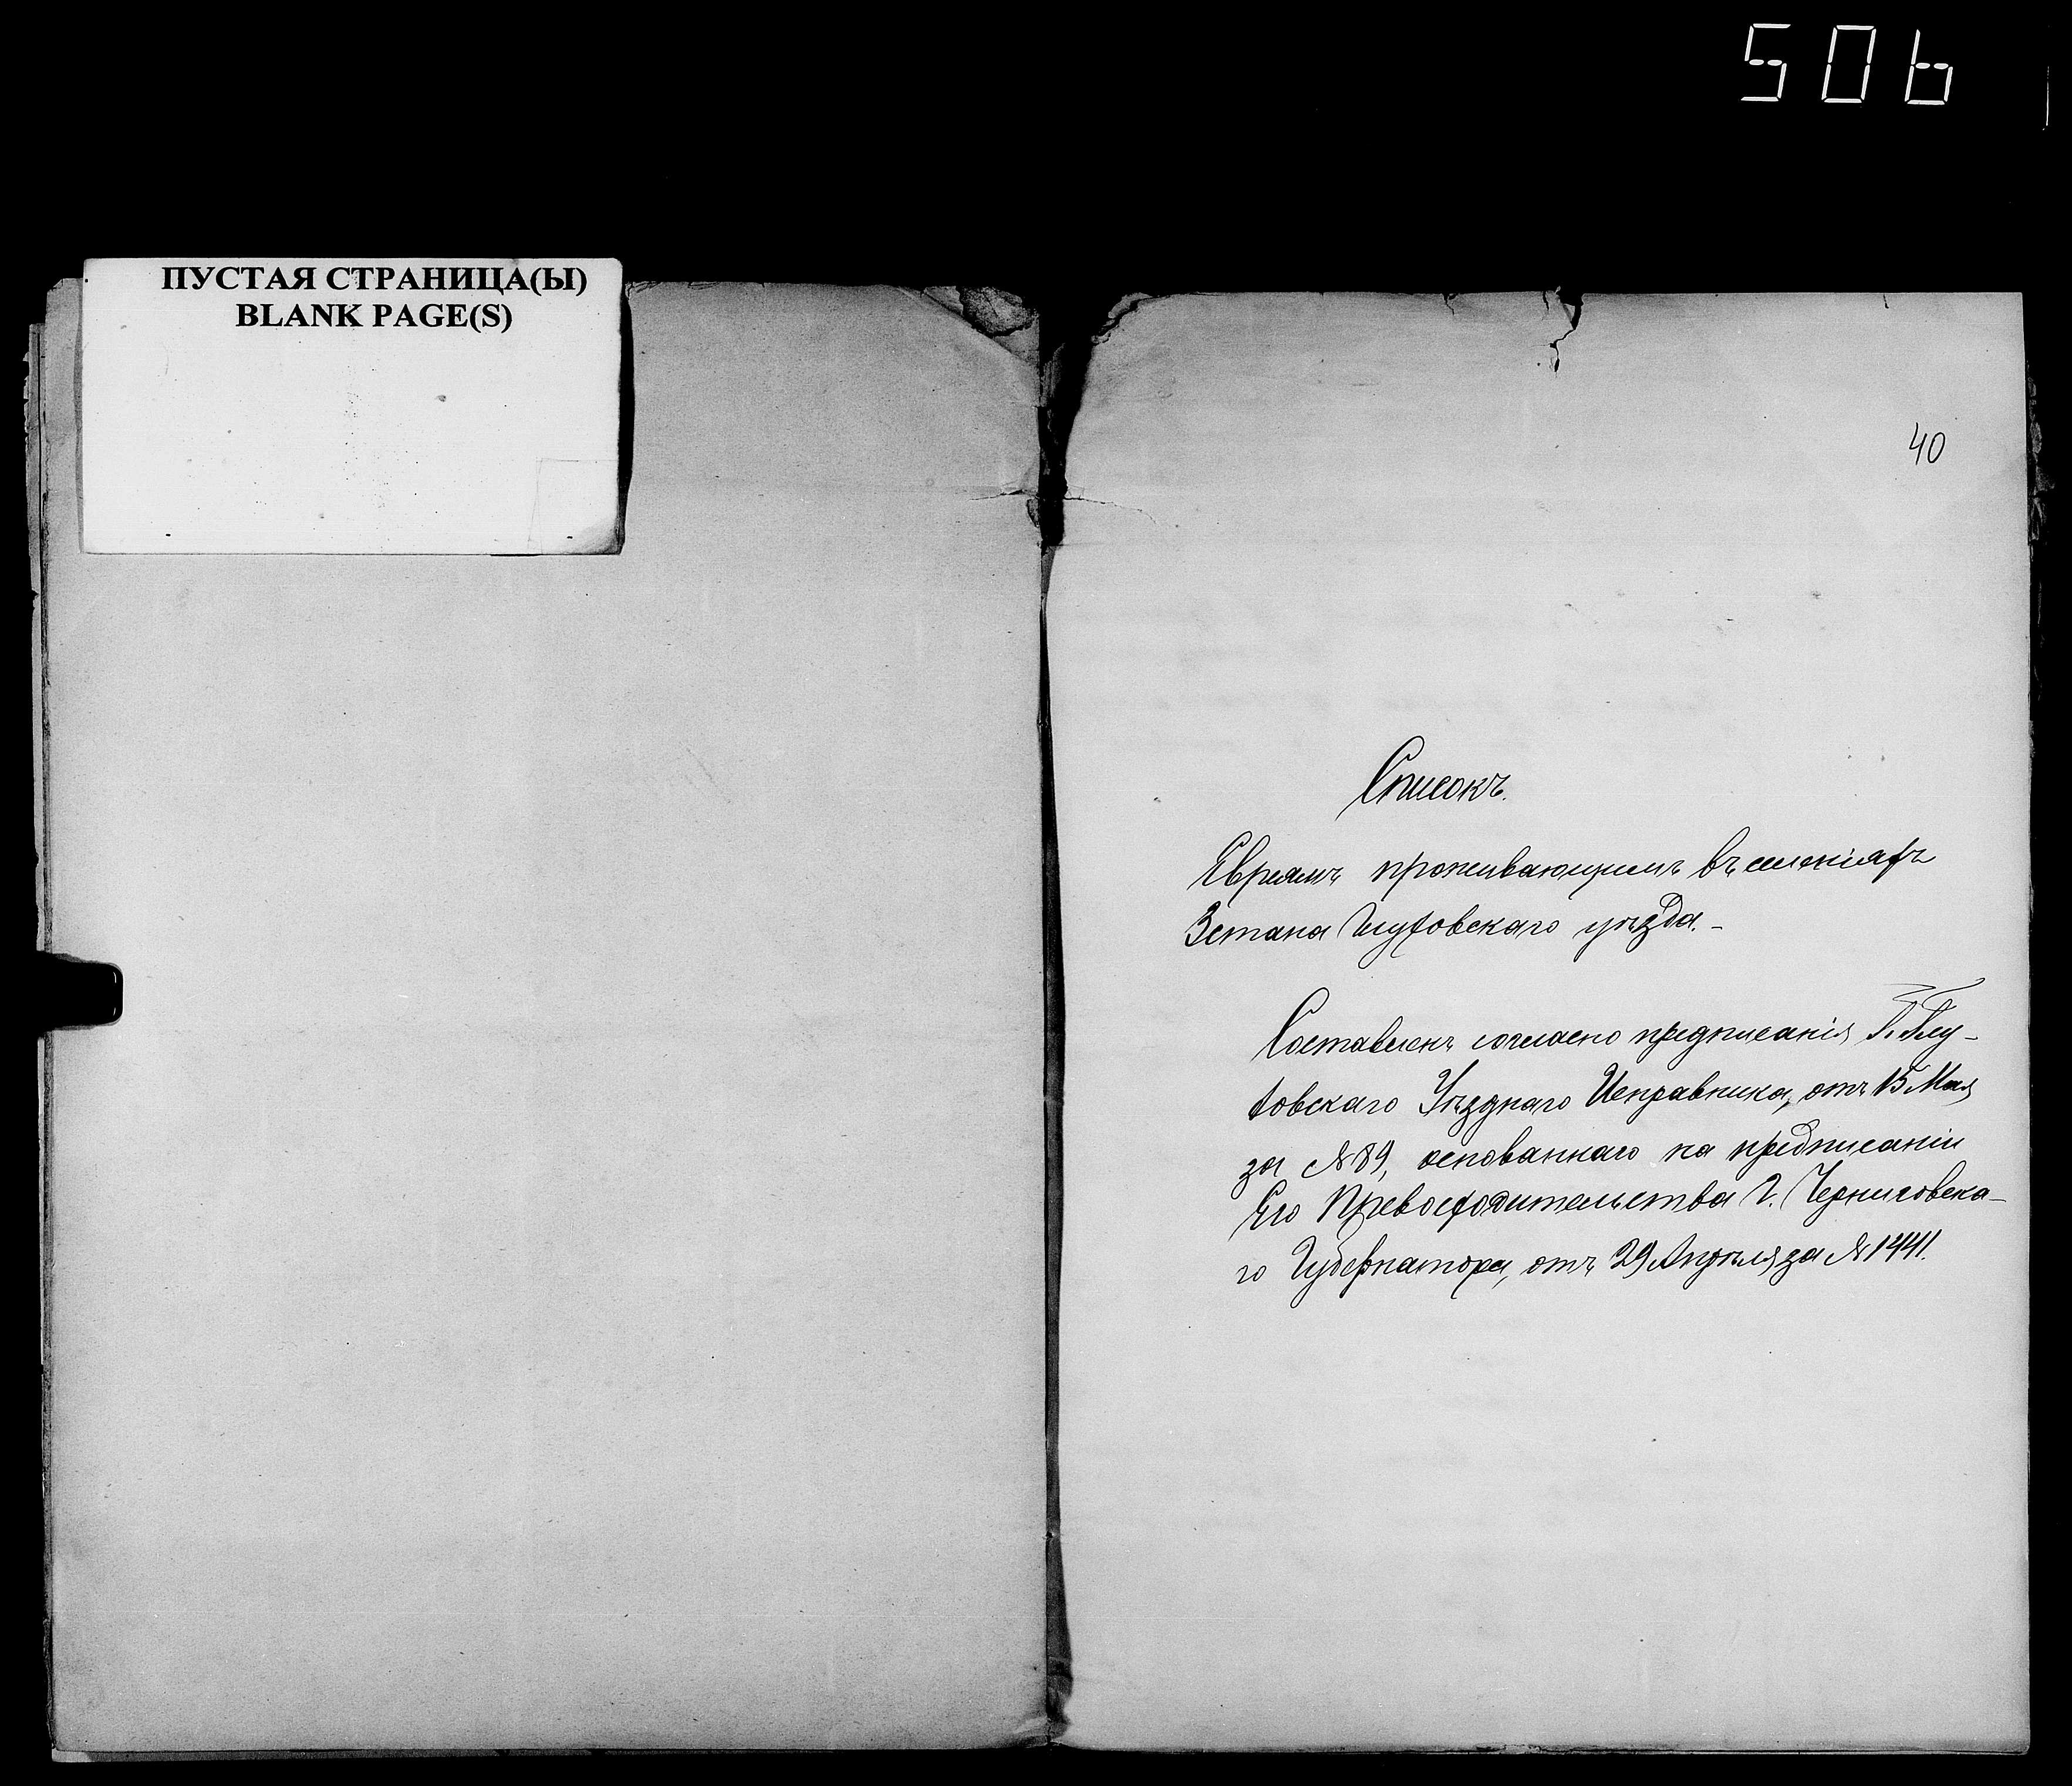 506
ПУСТАЯ СТРАНИЦА(Ы)
BLANK PAGE(S)
40
Списокъ.
Евреямъ проживающимъ въ имѣніяхъ
3 стана Глуховскаго уѣзда.-
Составленъ согласно предписанія Г. Глу-
ховскаго Уѣзднаго Исправника, отъ 15 Мая
за № 89, основаннаго на предписаніи
Его Превосходительства Г. Черниговска-
го Губернатора, отъ 29 Апрѣля за № 1441.